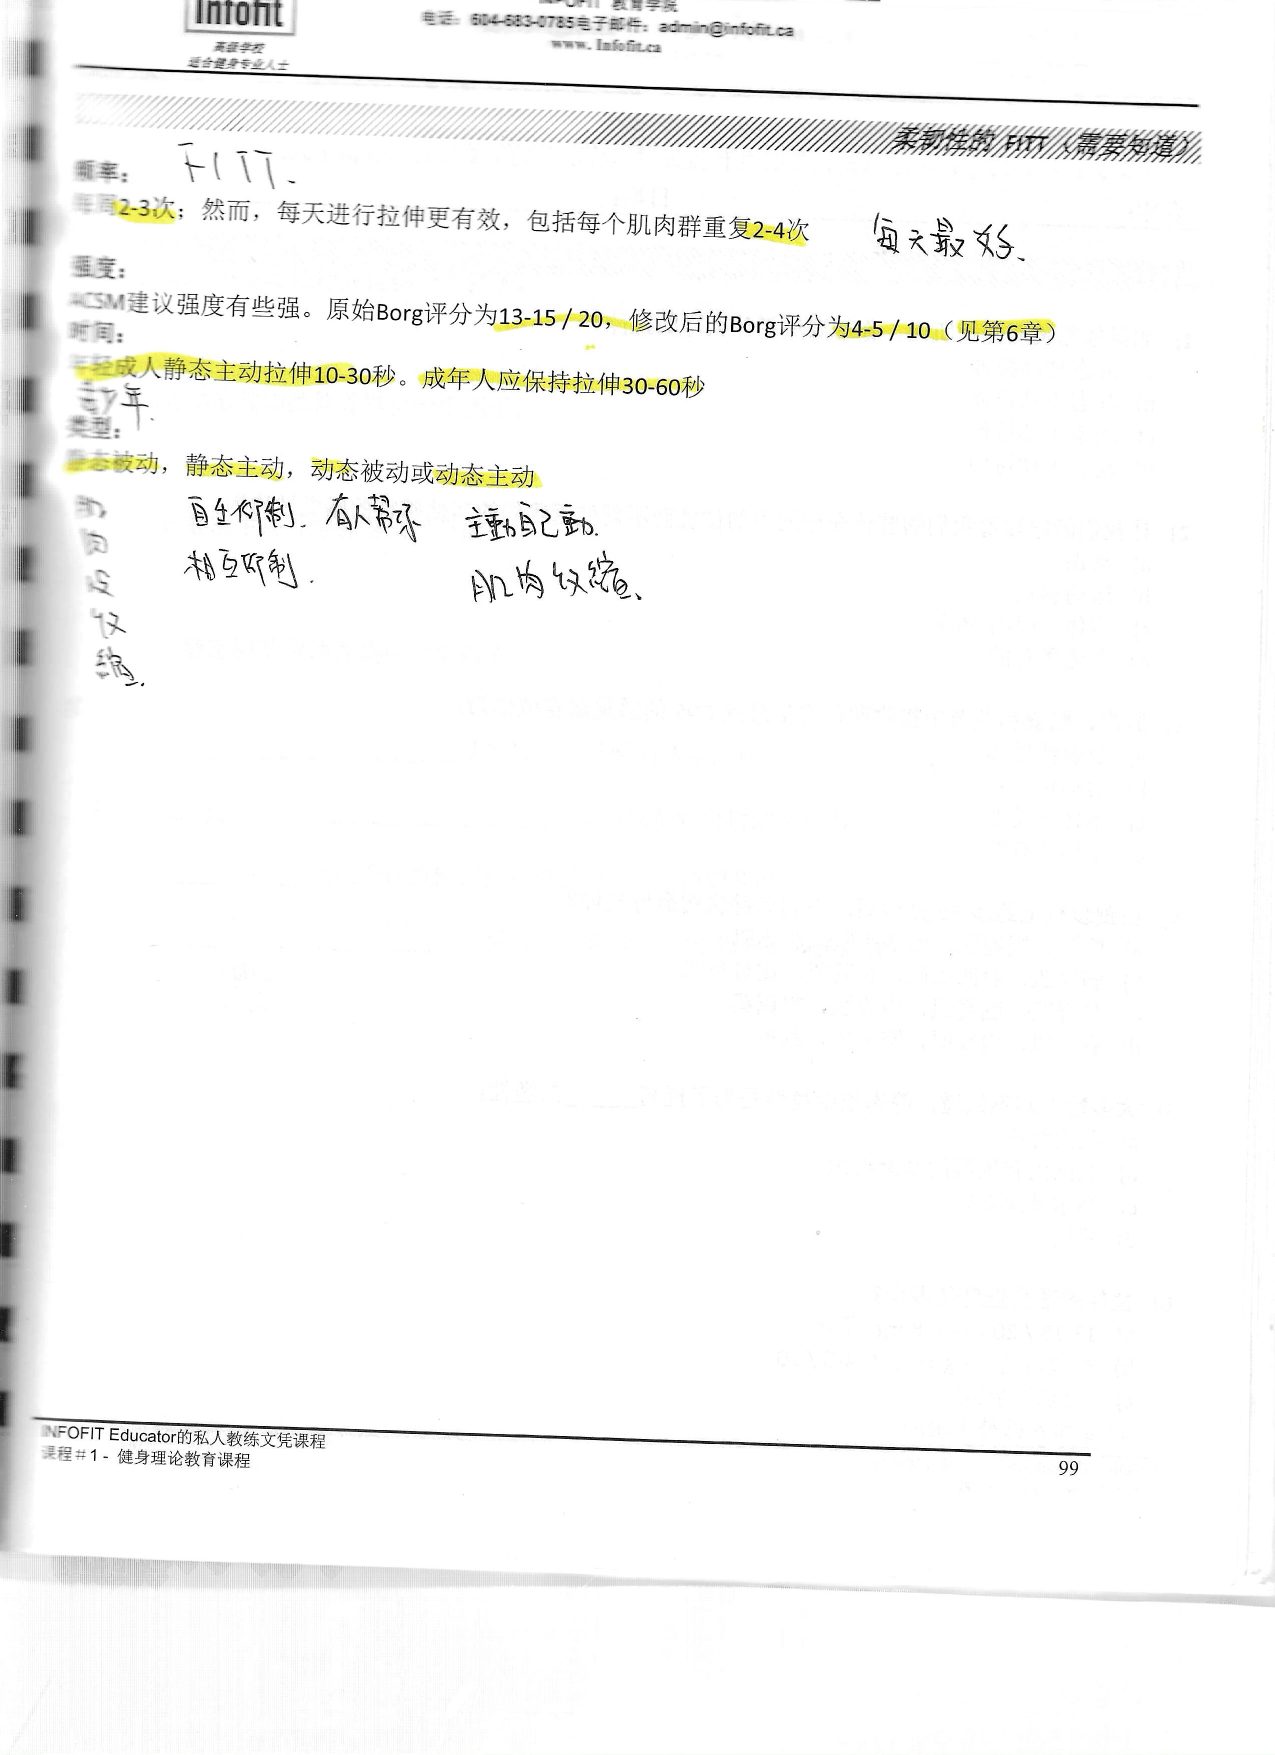 Infofit
高级学校
适合健身专业人士
INFOFIT 教育学院
电话：604-683-0785电子邮件：admin@infofit.ca
www.Infofit.ca
柔韧性的 FITT（需要知道）
频率：
FITT.
每周2-3次；然而，每天进行拉伸更有效，包括每个肌肉群重复2-4次
每天最好.
强度：
ACSM建议强度有些强。原始Borg评分为13-15 / 20，修改后的Borg评分为4-5 / 10（见第6章）
时间：
年轻成人静态主动拉伸10-30秒。成年人应保持拉伸30-60秒
类型：
静态被动，静态主动，动态被动或动态主动
肌肉没收缩.
自生抑制. 有人帮你 主動自己動.
相互抑制.
肌肉收縮、
INFOFIT Educator的私人教练文凭课程
课程＃1 - 健身理论教育课程
99